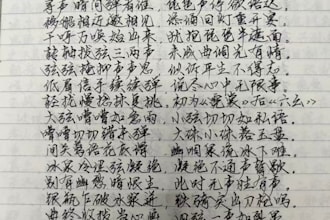 寻声暗问弹者谁 琵琶声停欲语迟
移船相近邀相见 添酒回灯重开宴
千呼万唤始出来 犹抱琵琶半遮面
转轴拨弦三两声 未成曲调先有情
弦弦掩抑声声思 似诉平生不得志
低眉信手续续弹 说尽心中无限事
轻拢慢捻抹复挑 初为《霓裳》后《六幺》
大弦嘈嘈如急雨 小弦切切如私语
嘈嘈切切错杂弹 大珠小珠落玉盘
间关莺语花底滑 幽咽泉流冰下难
冰泉冷涩弦凝绝 凝绝不通声暂歇
别有幽愁暗恨生 此时无声胜有声
银瓶乍破水浆迸 铁骑突出刀枪鸣
曲终收拨当心画 四弦一声如裂